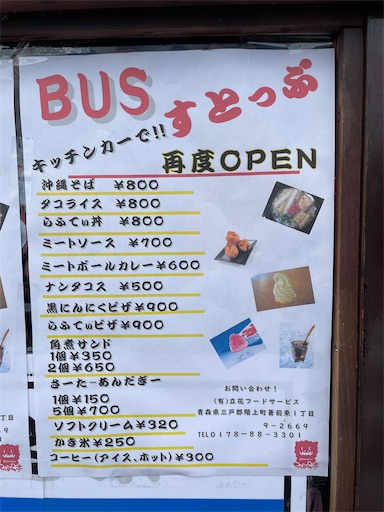 BUS
すとっぷ
キッチンカーで!!
再度OPEN
沖縄そば ¥800
タコライス ¥800
らふてぃ丼 ¥800
ミートソース ¥700
ミートボールカレー¥600
ナンタコス ¥500
黒にんにくピザ¥900
らふてぃピザ¥900
角煮サンド
1個¥350
2個¥650
さーたーあんだぎー
1個¥150
5個¥700
ソフトクリーム¥320
かき氷¥250
コーヒー(アイス、ホット)¥300
お問い合わせ!
(有)立花フードサービス
青森県三戸郡階上町蒼前東1丁目
9-2669
TEL0178-88-3301
丁目
9
1